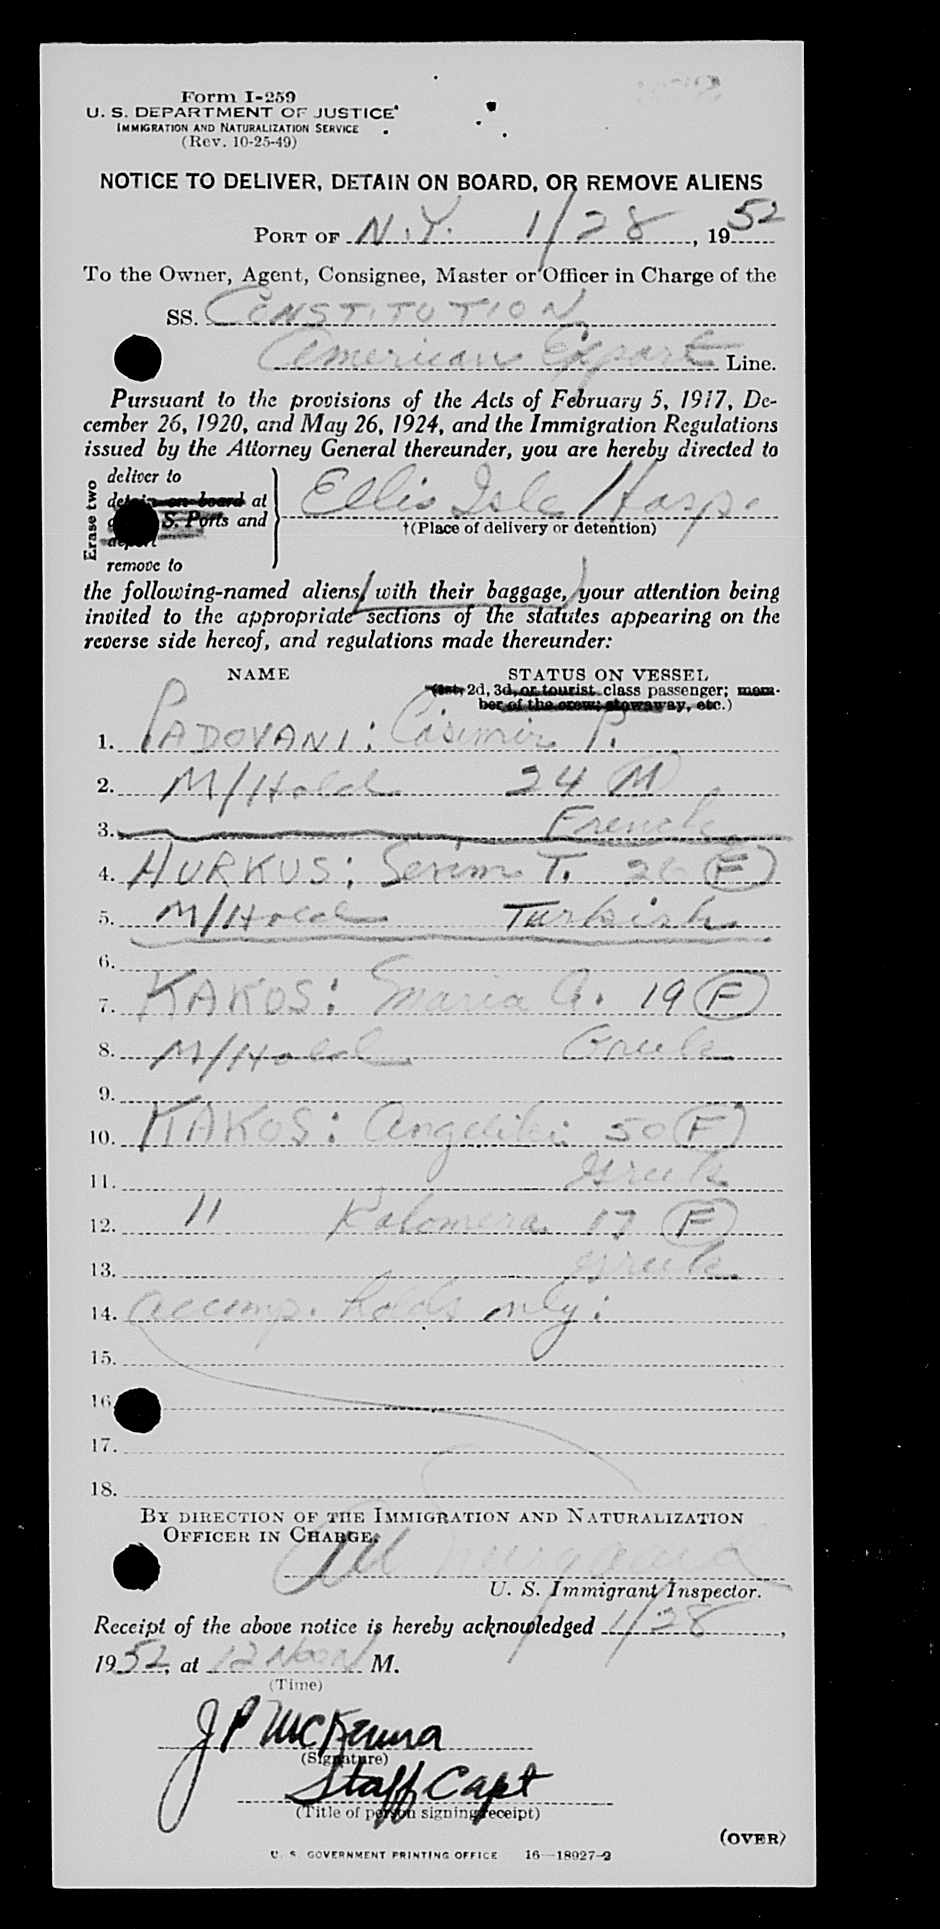 Form I-259
U. S. DEPARTMENT OF JUSTICE
IMMIGRATION AND NATURALIZATION SERVICE
(Rev. 10-25-49)
NOTICE TO DELIVER, DETAIN ON BOARD, OR REMOVE ALIENS
PORT OF N.Y. 1/28, 1952
To the Owner, Agent, Consignee, Master or Officer in Charge of the
SS. CONSTITUTION
American Export Line.
Pursuant to the provisions of the Acts of February 5, 1917, De-
cember 26, 1920, and May 26, 1924, and the Immigration Regulations
issued by the Attorney General thereunder, you are hereby directed to
Erase two
deliver to
detain on board at
S. Ports and
deport
remove to
Ellis Isle Hosp.
†(Place of delivery or detention)
the following-named aliens, with their baggage, your attention being
invited to the appropriate sections of the statutes appearing on the
reverse side hereof, and regulations made thereunder:
NAME STATUS ON VESSEL
(1st, 2d, 3d, or tourist class passenger; mem-
ber of the crew; stowaway, etc.)
1. PADOVANI: Casimir P.
2. M/Hold 24 M
3. French
4. HURKUS: Serim T. 26 F
5. M/Hold Turkish
6.
7. KAKOS: Maria G. 19 F
8. M/Hold Greek
9.
10. KAKOS: Angeliki 50 F
11. Greek
12. " Kalomera 17 F
13. Greek
14. accomp. holds only:
15.
16.
17.
18.
BY DIRECTION OF THE IMMIGRATION AND NATURALIZATION
OFFICER IN CHARGE.
U. S. Immigrant Inspector.
Receipt of the above notice is hereby acknowledged 1/28,
1952, at 12 Noon M.
(Time)
J P McKenna
(Signature)
Staff Capt
(Title of person signing receipt)
(OVER)
U. S. GOVERNMENT PRINTING OFFICE 16—18027-2